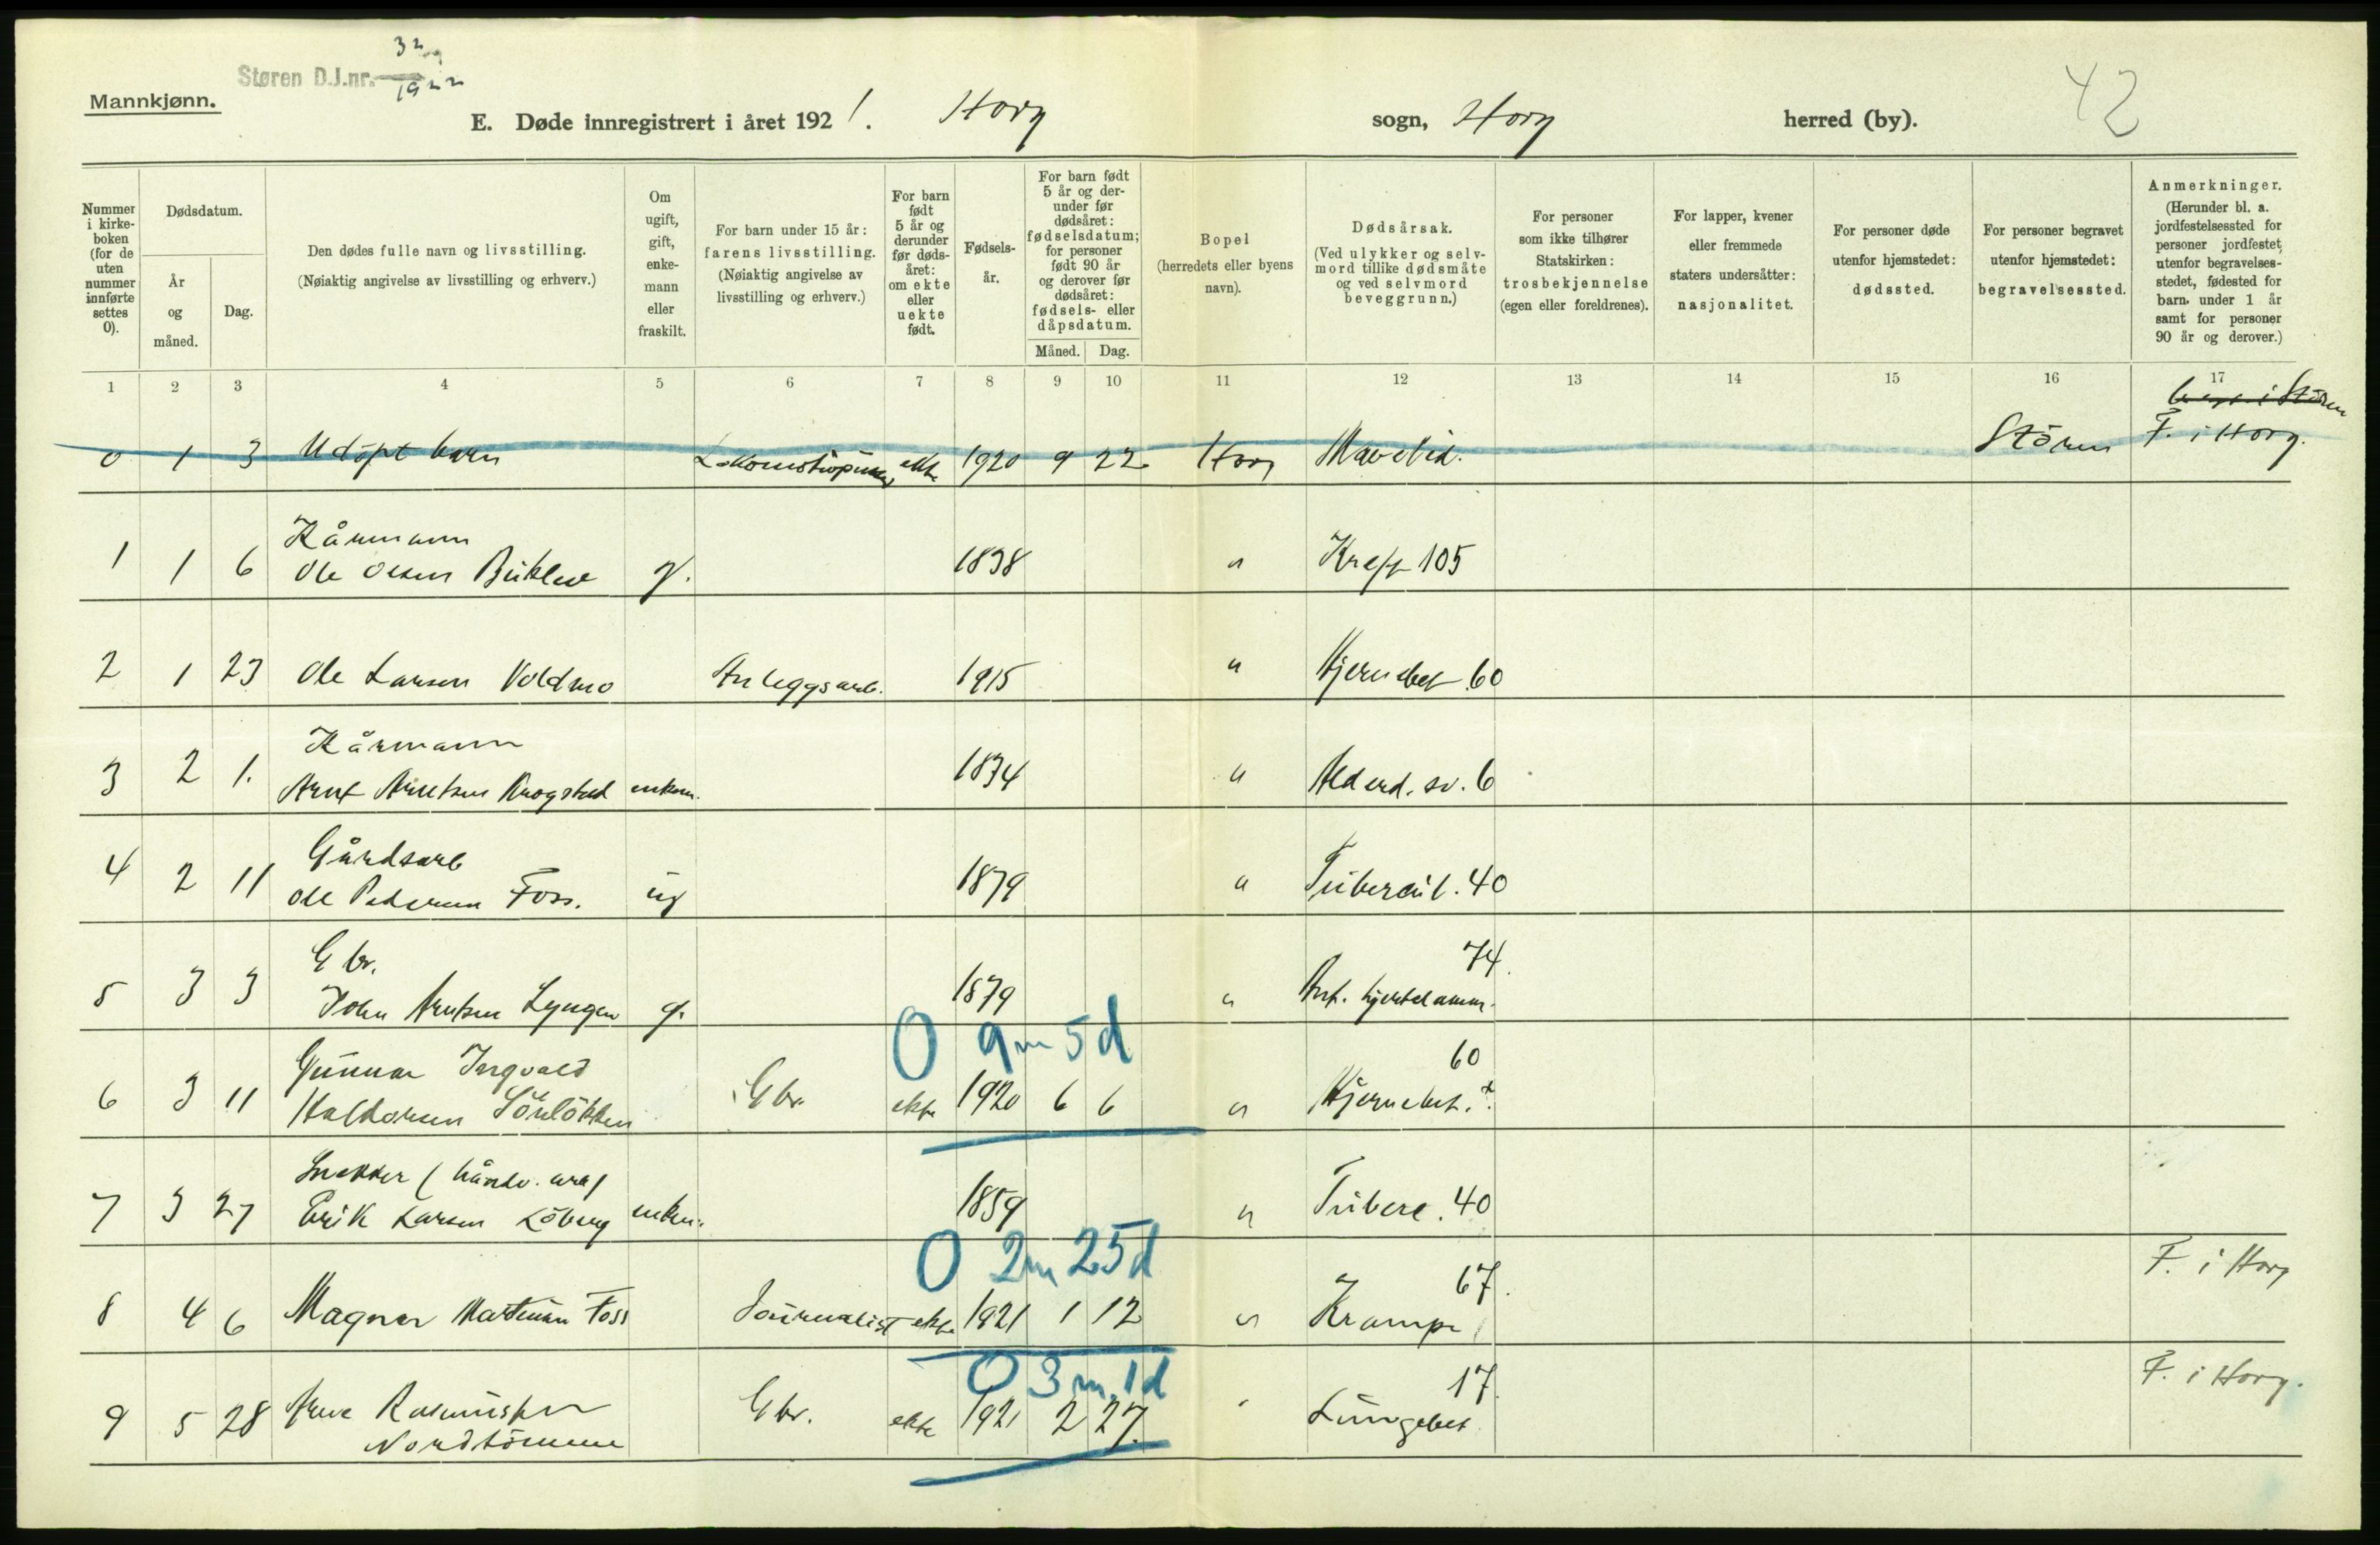 Mannkjønn.
Støren D.J.nr. 32/1922
E. Døde innregistrert i året 1921. Horg sogn, Horg herred (by). 42
Nummer i kirke-boken (for de uten nummer innførte settes 0).
Dødsdatum.
År og måned.
Dag.
Den dødes fulle navn og livsstilling.
(Nøiaktig angivelse av livsstilling og erhverv.)
Om ugift, gift, enke-mann eller fraskilt.
For barn under 15 år: farens livsstilling.
(Nøiaktig angivelse av livsstilling og erhverv.)
For barn født 5 år og derunder før døds-året: om ekte eller uekte født.
Fødsels-år.
For barn født 5 år og der-under før dødsåret: fødselsdatum; for personer født 90 år og derover før dødsåret: fødsels- eller dåpsdatum.
Måned. Dag.
Bopel
(herredets eller byens navn).
Dødsårsak.
(Ved ulykker og selv-mord tillike dødsmåte og ved selvmord beveggrunn.)
For personer som ikke tilhører Statskirken: trosbekjennelse (egen eller foreldrenes).
For lapper, kvener eller fremmede staters undersåtter: nasjonalitet.
For personer døde utenfor hjemstedet: dødssted.
For personer begravet utenfor hjemstedet: begravelsessted.
Anmerkninger.
(Herunder bl. a. jordfestelsessted for personer jordfestet utenfor begravelses-stedet, fødested for barn under 1 år samt for personer 90 år og derover.)
1 2 3 4 5 6 7 8 9 10 11 12 13 14 15 16 17
i Stören
0 1 3 Udöpt barn ekte 1920 9 22 Horg Stören F. i Horg.
Kårmann
1 1 6 Ole Olsen g. 1838 " 105
2 1 23 Ole Larsen Voldmo Anleggsarb. 1915 " Hjernebet 60
Kårmann
3 2 1. Arnt Arntsen Krogstad enkem. 1834 " Alderd. sv. 6
Gårdsarb
4 2 11 Ole Pedersen Foss. ug 1879 " Tubercul. 40
Gbr. 74.
5 3 3 John Arntsen Lyngen g. 1879 "
0 9m 5d
Gunnar Ingvald 60
6 3 11 Haldorsen Sörlökken Gbr. ekte 1920 6 6 " Hjernebet. ?.
Snekker (håndv. arb)
7 3 27 Erik Larsen Löberg enkem. 1859 " Tuberc. 40
0 2m 25d
67. F. i Horg
8 4 6 Magnar Martinius Foss Journalist ekte 1921 1 12 " Krampe
0 3m 1d
17. F. i Horg.
9 5 28 Arne Rasmussen Gbr. ekte 1921 2 27. " Lungebet
Nordtömme